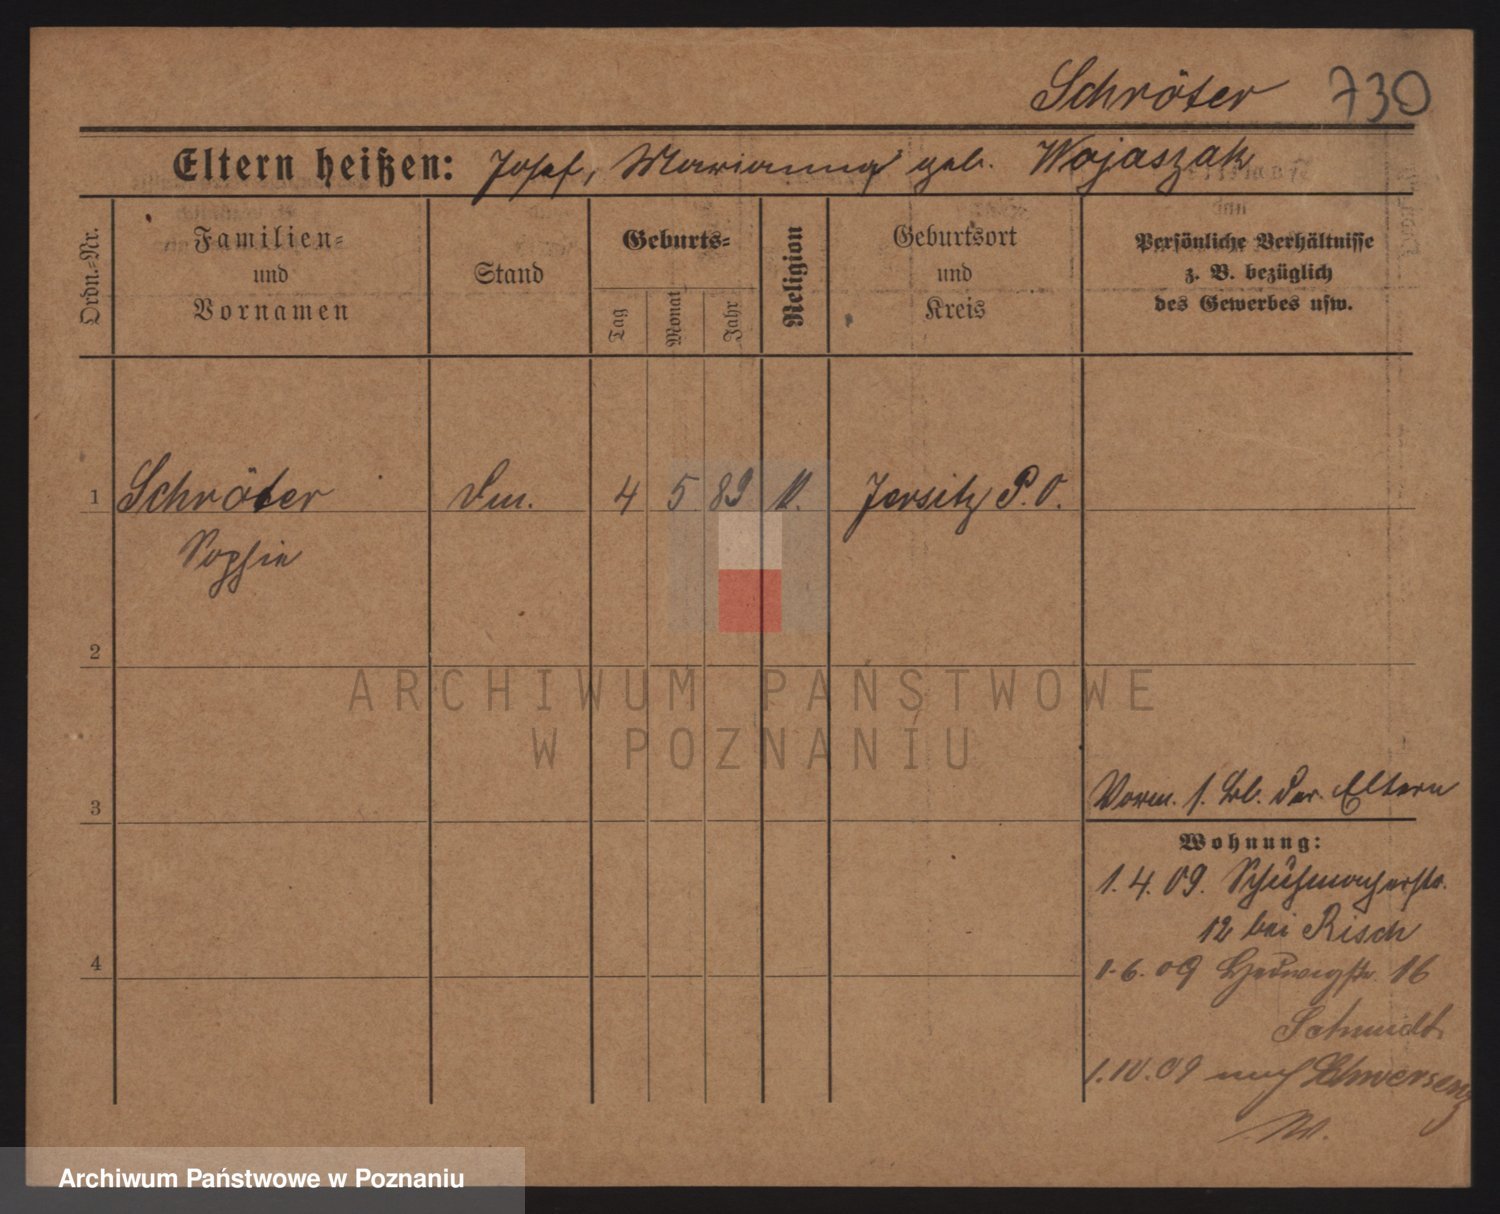 Schröter 730
Eltern heißen: Josef, Marianna geb. Wojaszak
Ordn.-Nr.
Familien-
und
Vornamen
Stand
Geburts-
Tag
Monat
Jahr
Religion
Geburtsort
und
Kreis
Persönliche Verhältnisse
z. B. bezüglich
des Gewerbes usw.
1 Schröter 4 5 89 Jersitz P. O.
Sophie
2
3
4
Vorm. s. bei der Eltern
Wohnung:
1.4.09. Schuhmacherstr.
12 bei Risch
1.6.09 Hedwigstr. 16
Schmidt
1.10.09 nach Schwersenz
ARCHIWUM PAŃSTWOWE
W POZNANIU
Archiwum Państwowe w Poznaniu